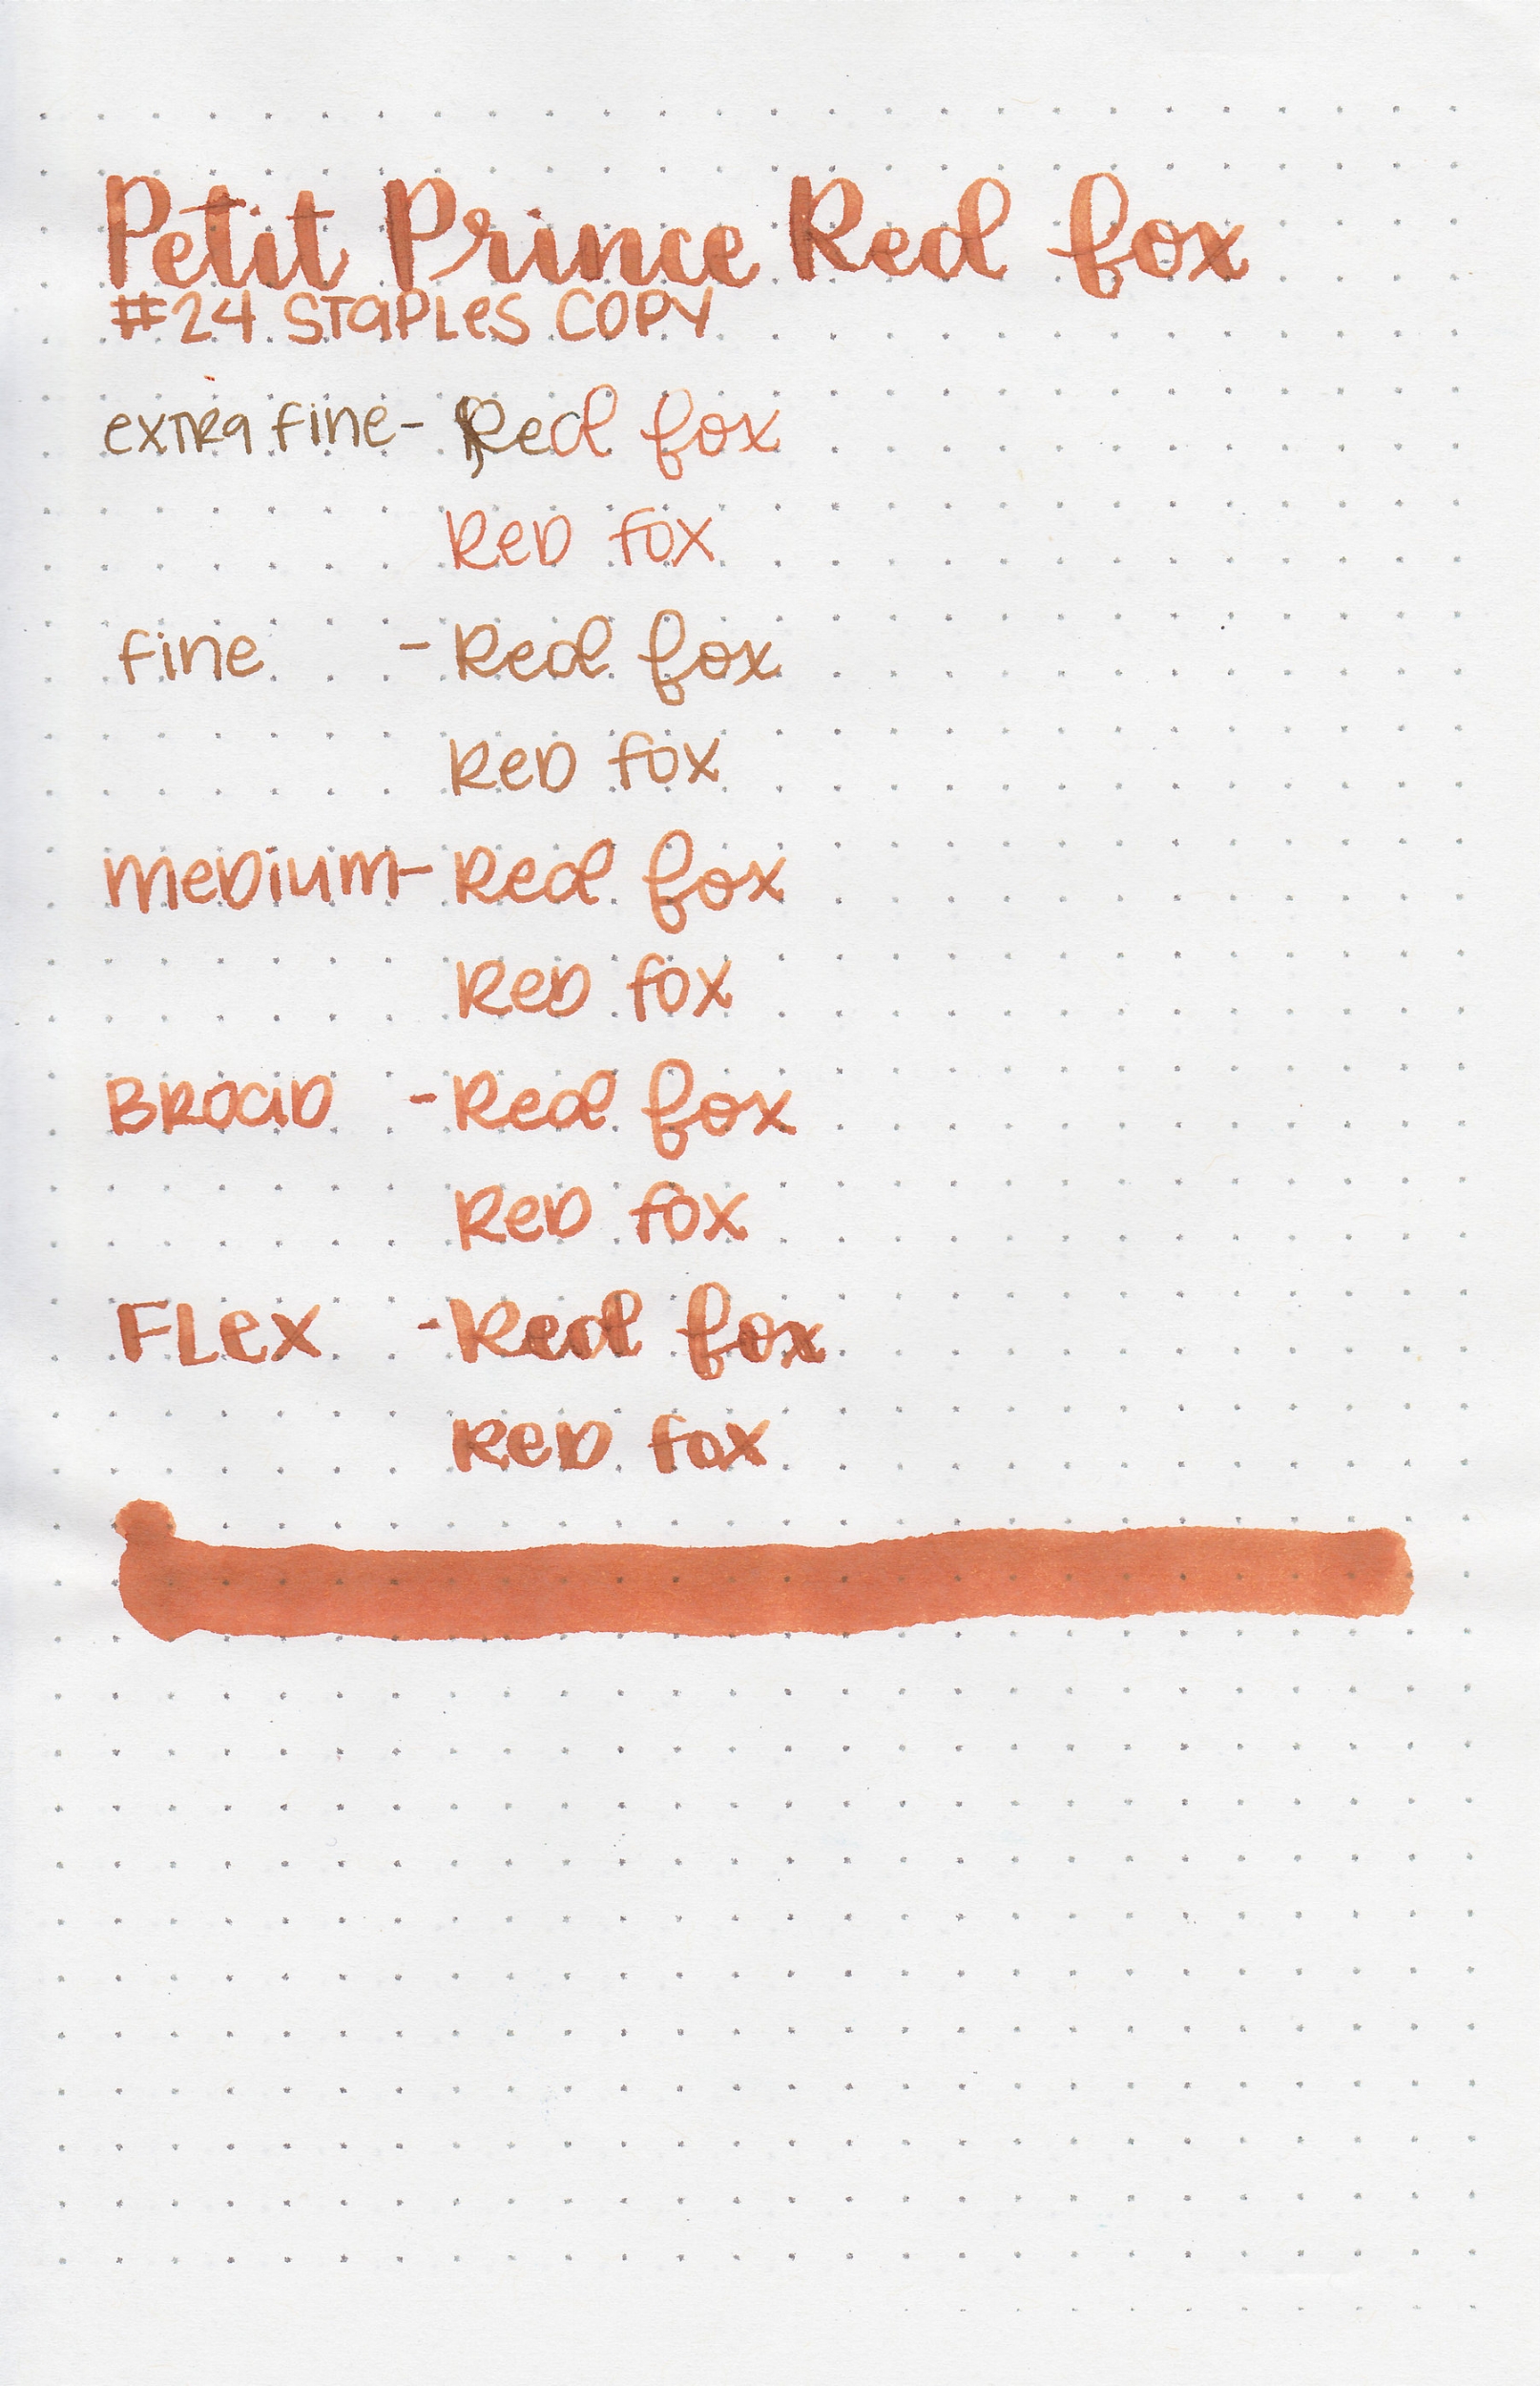 Petit Prince Red fox
#24 STaPLeS COPY
exTRa fine- Red fox
ReD fox
fine - Red fox
ReD fox
meDium- Red fox
ReD fox
BROaD - Red fox
ReD fox
FLex - Red fox
ReD fox